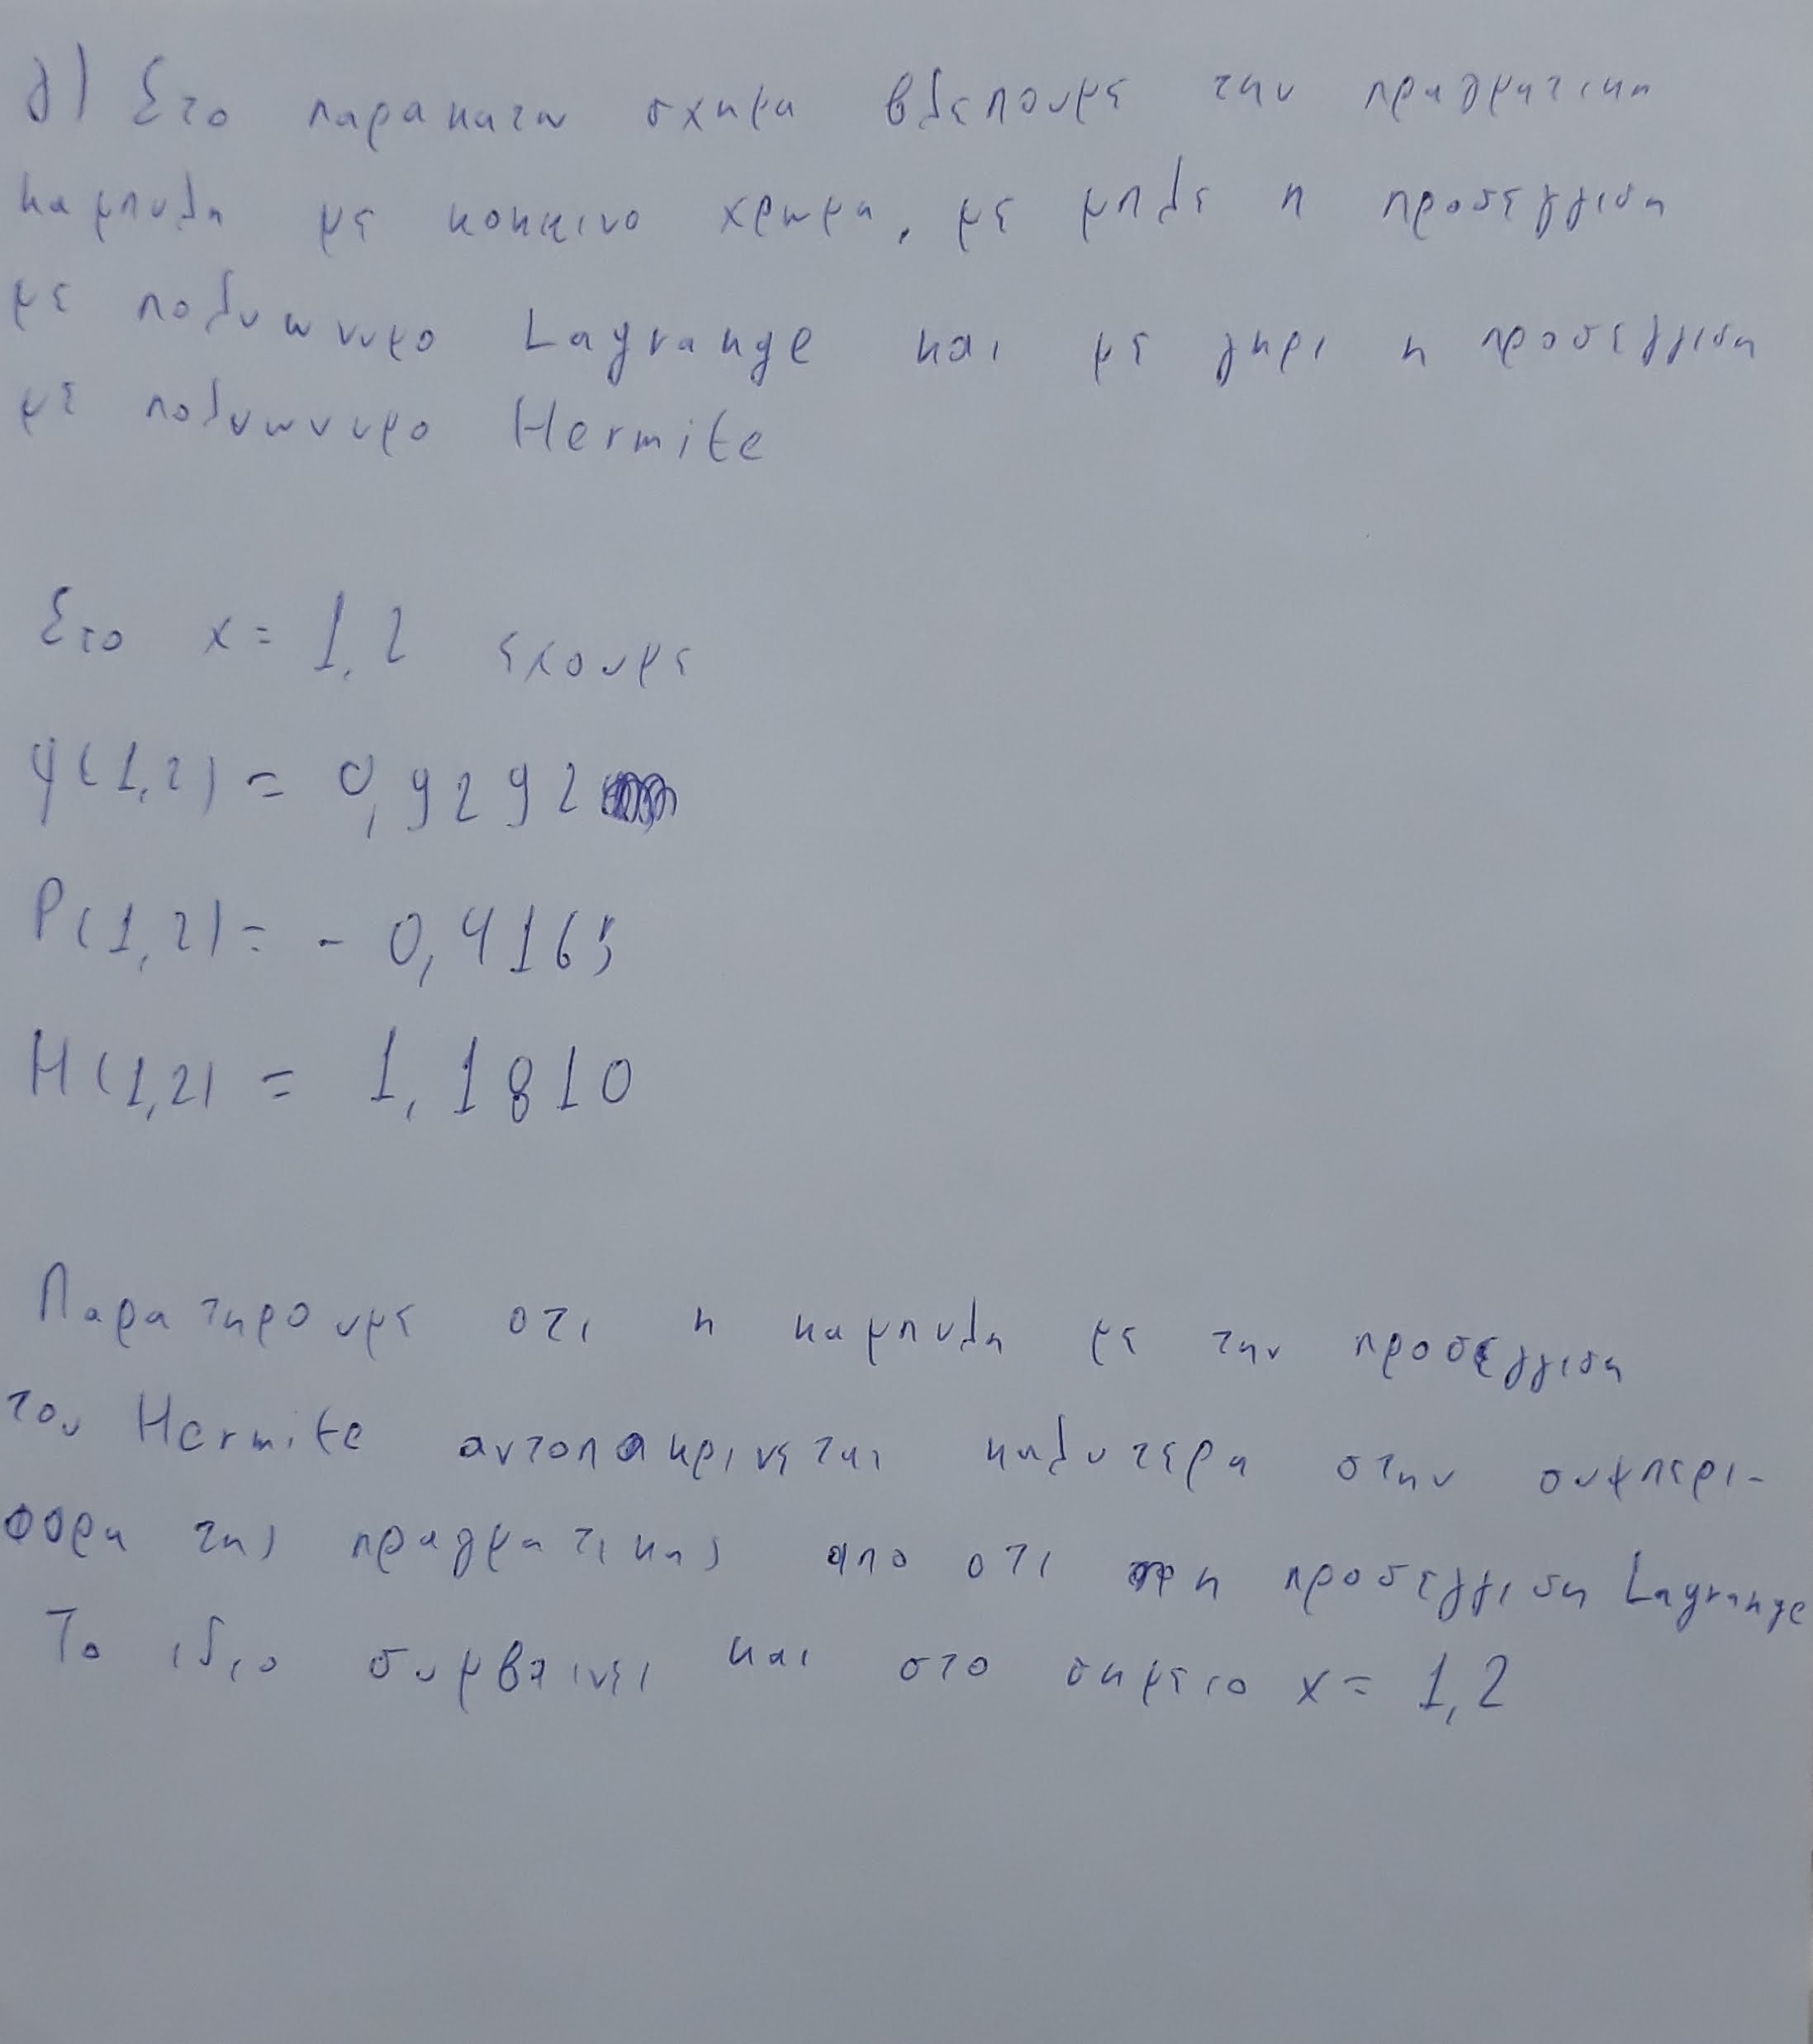 γ) Στο παρακατω σχημα βλεπουμε την πραγματικη
καμπυλη με κοκκινο χρωμα, με μπλε η προσεγγιση
με πολυωνυμο Lagrange και με γκρι η προσεγγιση
με πολυωνυμο Hermite
Στο x = 1,2 εχουμε
y(1,2) = 0,9292
P(1,2) = - 0,4165
H(1,2) = 1,1810
Παρατηρουμε οτι η καμπυλη με την προσεγγιση
του Hermite ανταποκρινεται καλυτερα στην συμπερι-
φορα της πραγματικης απο οτι η προσεγγιση Lagrange
Το ιδιο συμβαινει και στο σημειο x = 1,2